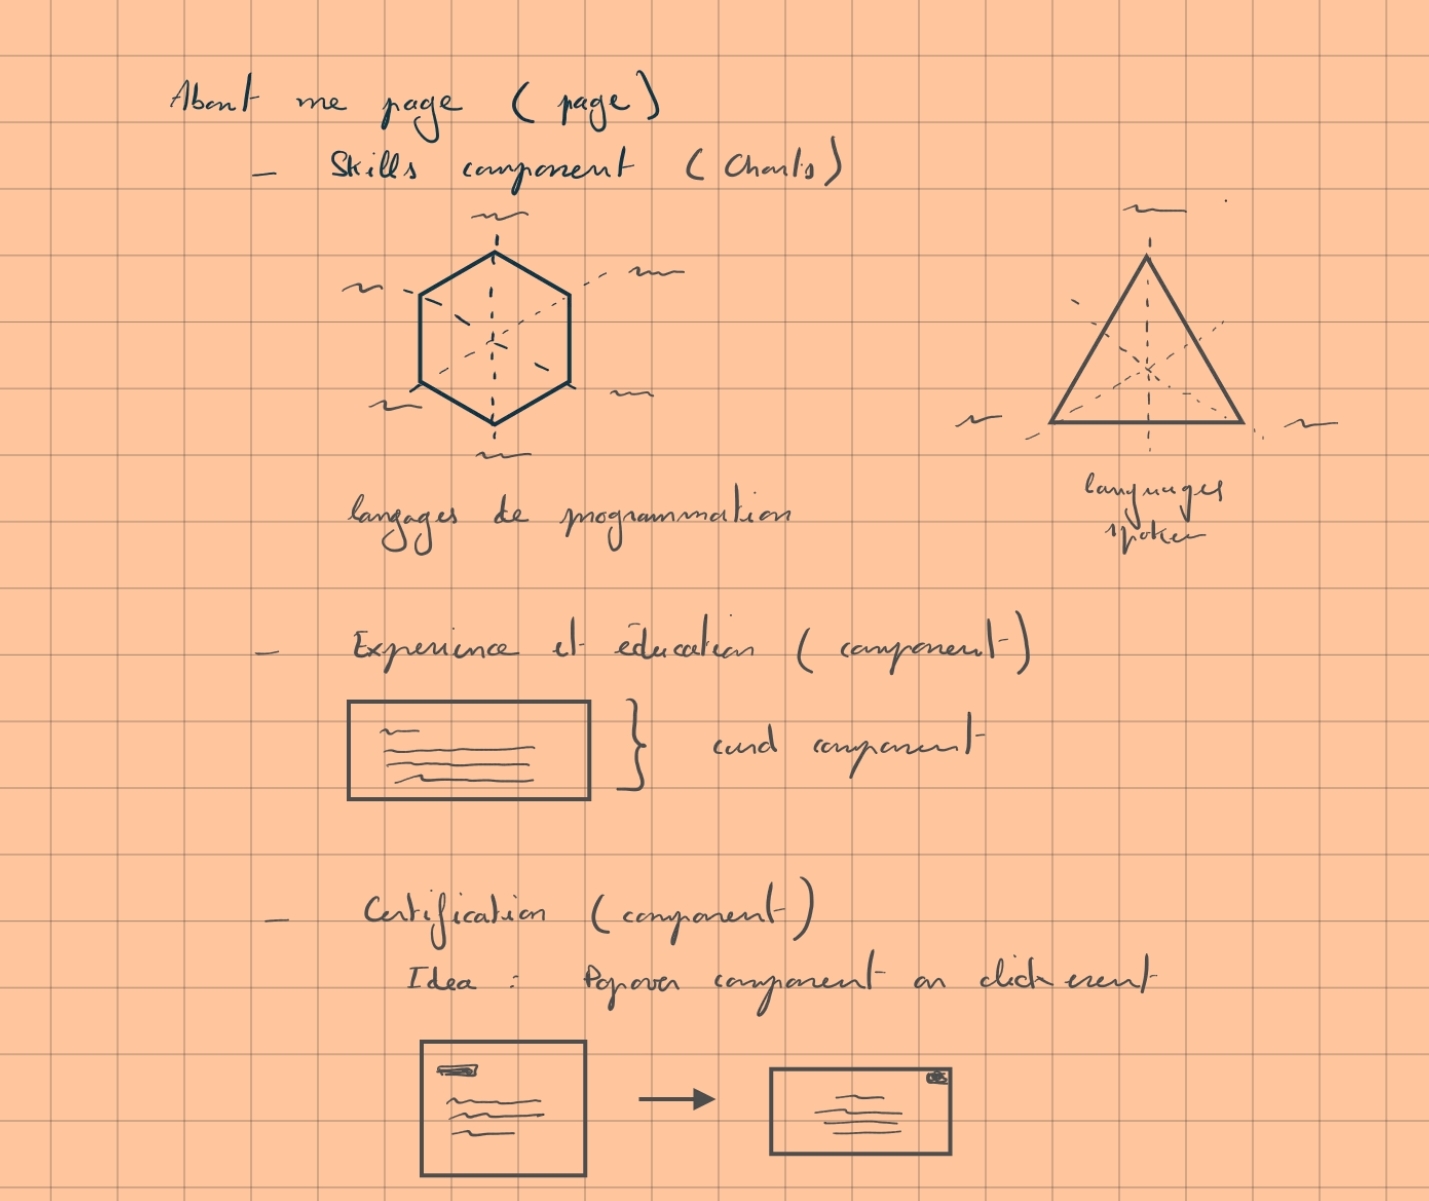 About me page (page)
- Skills component (Charts)
langages de programmation
languages
spoken
- Experience et éducation (component)
card component
- Certification (component)
Idea : Popover component on click event